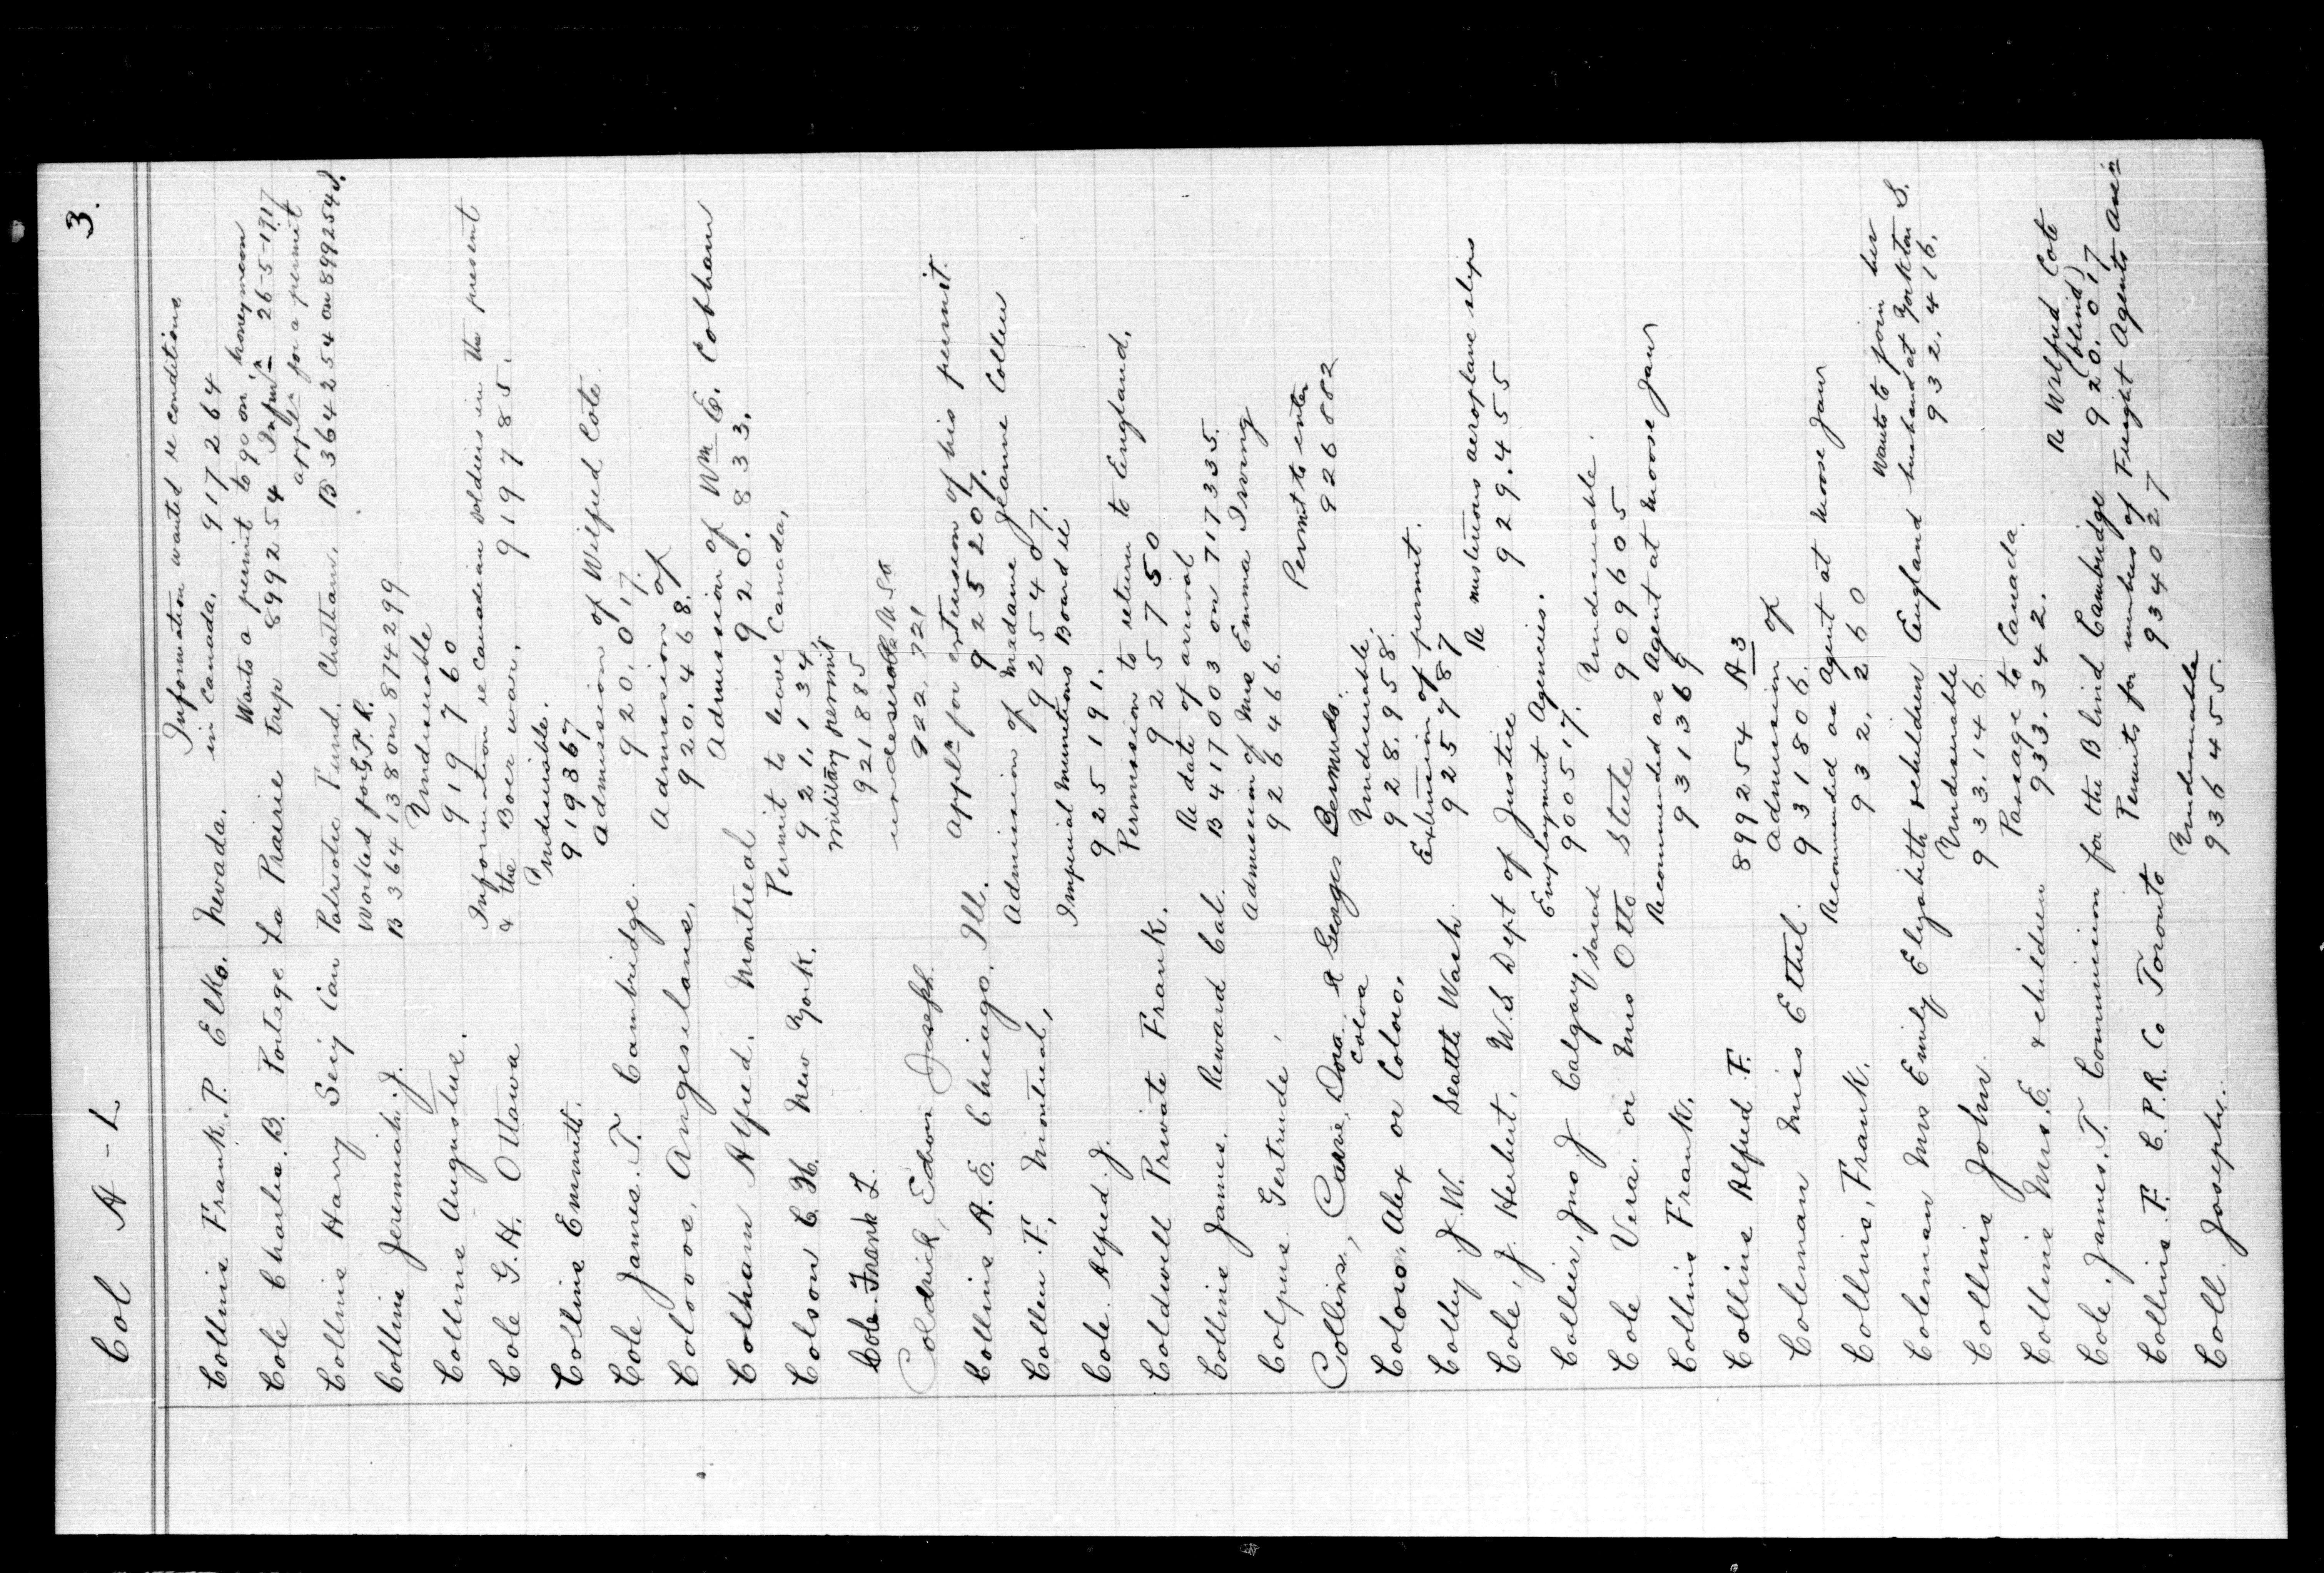 Col A - L 3.
Information wanted re conditions
Collins Frank. P. Elko. Nevada. in Canada. 917264
Wants a permit to go on honeymoon
Cole Charles. B. Portage La Prairie trip 899254 26-5-1917
applys for a permit
Collins Harry Secy Can Patriotic Fund. Chatham. B 3642254 on 899254
Worked for G.T.R.
Collins Jeremiah. J. B 36413 80n 874299
Undesirable
Collins Augustus. 919760
Information re Canadian soldiers in the present
Cole G. H. Ottawa & the Boer war. 919785.
Undesirable.
Collins Emmett. 919867
Admission of Wilfred Cote
Cole James. T. Cambridge. 920.017.
Admission of
Colovos, Angeselans. 920.468.
Admission of Wm E. Cobham
Colham Alfred. Montreal 920.833.
Permit to leave Canada,
Colson C. H. New York. 921,134
Military permit
Cole Frank L. 921885
undesirable
Coldrick, Edson Joseph. 922,721
Appln for extension of his permit.
Collins A. E. Chicago. Ill. 925207.
Admission of Madame Jeanne Collen
Collen F., Montreal, 925407.
Imperial Munitions Board re
Cole Alfred J. 925191.
Permission to return to England,
Coldwell Private Frank. 925750
Re date of arrival
Collins James. Reward Cal. B 417003 on 717335.
Admission of Mrs Emma Irving
Colpus Gertrude, 926466.
Permit to enter
Collins, Carrie, Dora, St Georges Bermuda. 926882
Colva Undesirable.
Coloso. Alex or Coloro. 928.958.
Extension of permit.
Colley J. W. Seattle Wash. 925787
Re mysterious aeroplane slips
Cole, J. Herbert. U.S Dept of Justice 929.455
Employment Agencies.
Collier, Jno J. Calgary. 900517.
Sarah Undesirable.
Cole Vera. or Mrs Otto Steele 909605
Recommended as Agent at Moose Jaw
Collins Frank. 931369
Collins Alfred F. 899254 A 3
Admission of
Coleman Miss Ethel. 931806.
Recommended as Agent at Moose Jaw
Collins, Frank. 932,260
Wants to join her
Coleman Mrs Emily Elizabeth & children England husband at Yorkton S.
932.416.
Undesirable
Collins John 933.146.
Passage to Canada.
Collins Mrs. E. & children 933.342.
Re Wilfrid Cote
(blind)
Cole, James. T. Commission for the Blind Cambridge 920.017
Permits for members of Freight Agents Assn
Collins. F. C.P.R. Co Toronto 934027
Undesirable
Coll. Joseph. 936455.